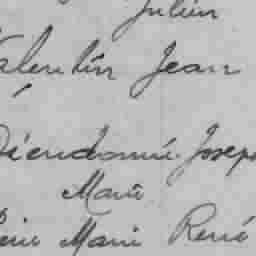 Julien
Valentin Jean
Dieudonné Joseph
Marie
Marie René